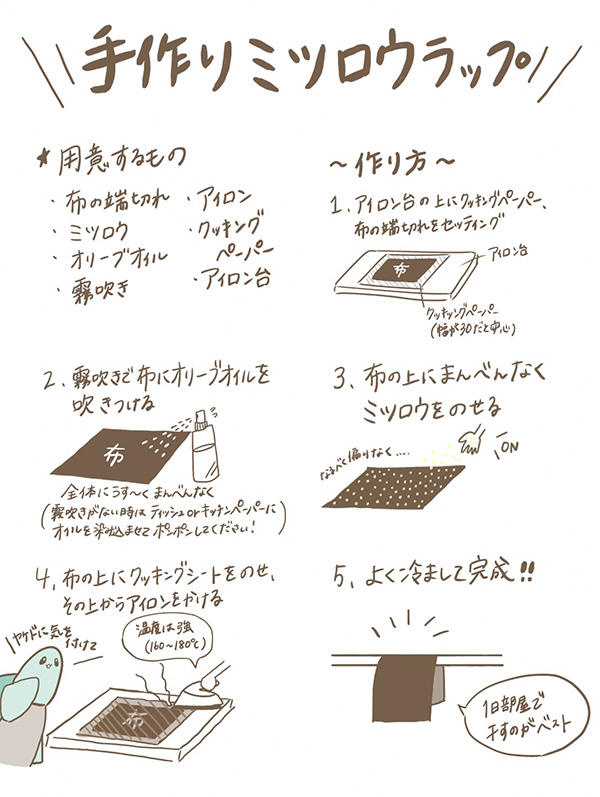 手作りミツロウラップ
★用意するもの
・布の端切れ
・ミツロウ
・オリーブオイル
・霧吹き
・アイロン
・クッキング
ペーパー
・アイロン台
～作り方～
1、アイロン台の上にクッキングペーパー、
布の端切れをセッティング
布
アイロン台
クッキングペーパー
(幅が30だと安心)
2、霧吹きで布にオリーブオイルを
吹きつける
布
全体にうす〜くまんべんなく
(霧吹きがない時はティッシュorキッチンペーパーに
オイルを染み込ませてポンポンしてください!)
3、布の上にまんべんなく
ミツロウをのせる
なるべく偏りなく....
ON
4、布の上にクッキングシートをのせ、
その上からアイロンをかける
ヤケドに気を
付けて
温度は強
(160〜180℃)
布
5、よく冷まして完成!!
1日部屋で
干すのがベスト